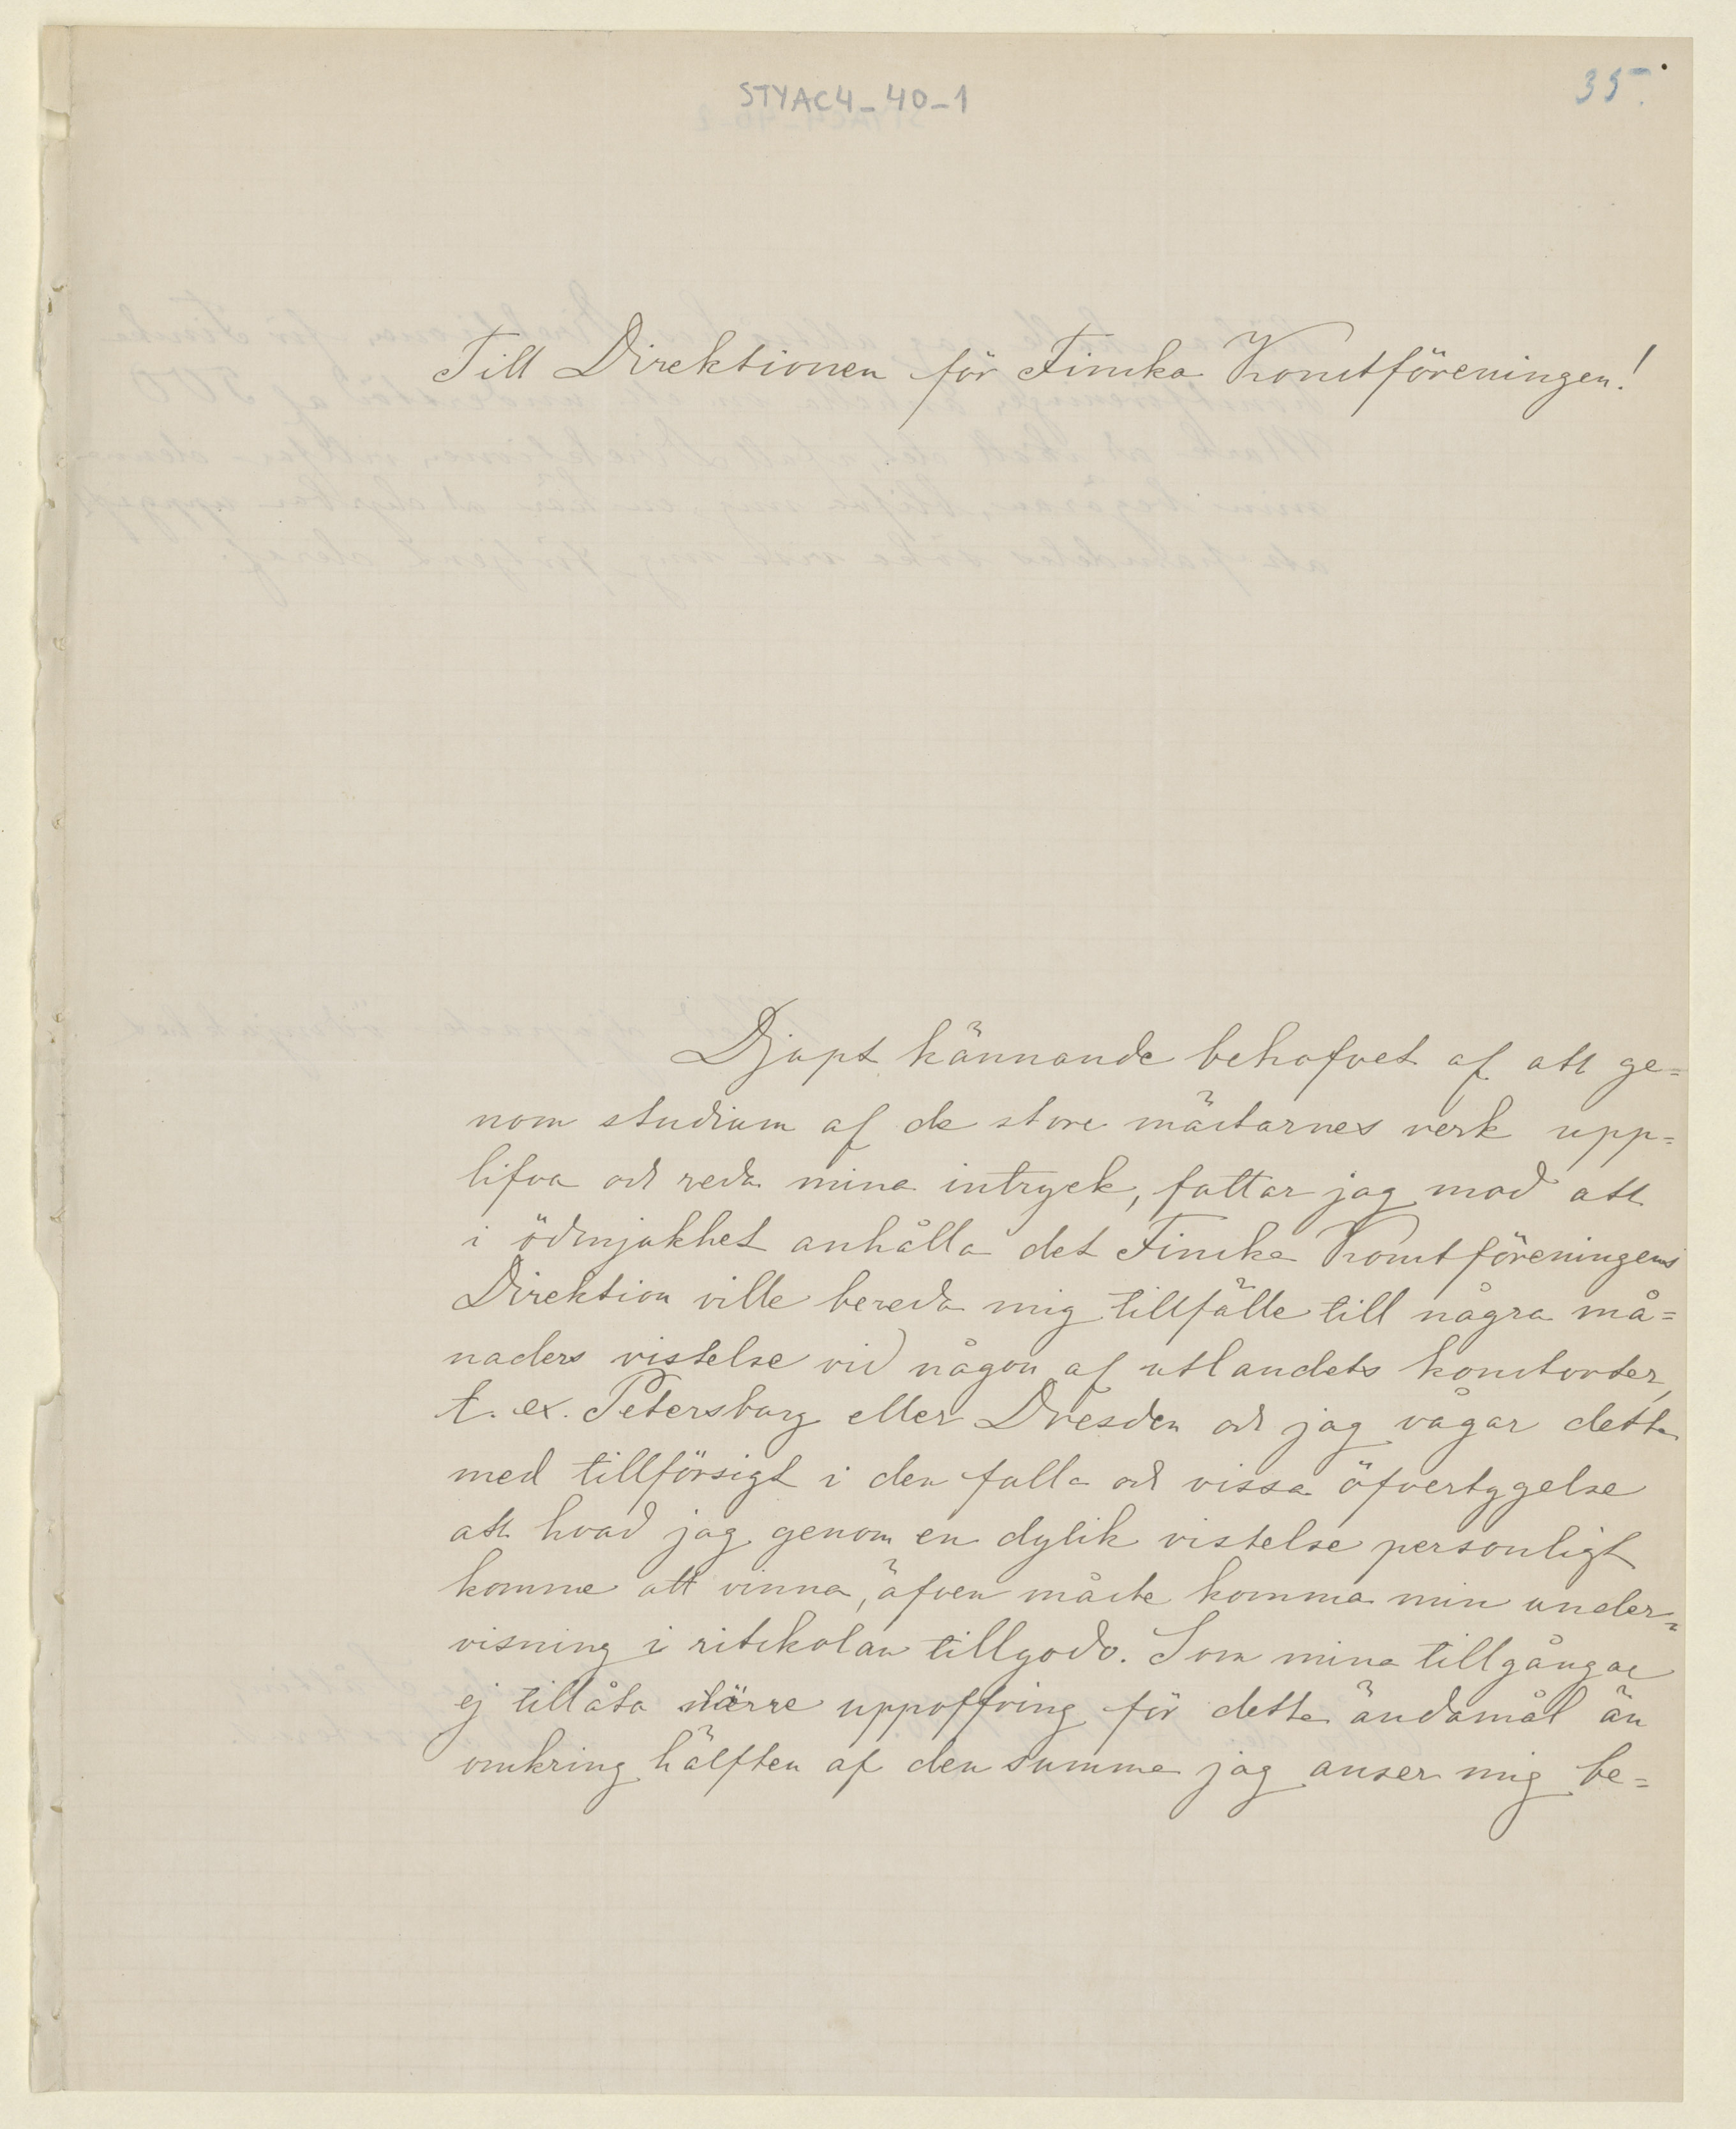 STYAC4-40-1
35.
Till Direktionen för Finska Konstföreningen!
Djupt kännande behofvet af att ge=
nom studium af de store mästarnes verk upp=
lifva och reda mina intryck, fattar jag mod att
i ödmjukhet anhålla det Finska Konstföreningens
Direktion ville bereda mig tillfälle till några må=
naders vistelse vid någon af utlandets konstorter,
t. ex. Petersburg eller Dresden och jag vågar detta
med tillförsigt i den fulla och vissa öfvertygelse
att hvad jag genom en dylik vistelse personligt
komme att vinna, äfven måste komma min under=
visning i ritskolan tillgodo. Som mina tillgångar
ej tillåta större uppoffring för detta ändamål än
omkring hälften af den summa jag anser mig be=